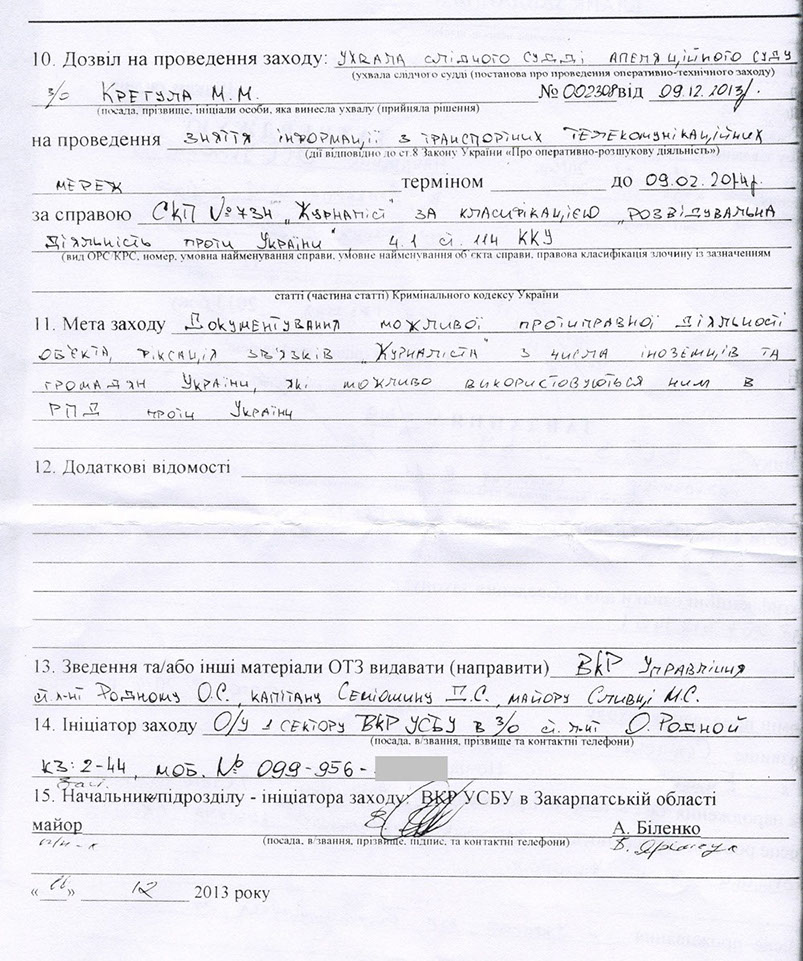 10. Дозвіл на проведення заходу: УХВАЛА СЛІДЧОГО СУДДІ АПЕЛЯЦІЙНОГО СУДУ
(ухвала слідчого судді (постанова про проведення оперативно-технічного заходу)
З/О КРЕГУЛА М.М. № 002308 від 09.12.2013р.
(посада, прізвище, ініціали особи, яка винесла ухвалу (прийняла рішення)
на проведення ЗНЯТТЯ ІНФОРМАЦІЇ З ТРАНСПОРТНИХ ТЕЛЕКОМУНІКАЦІЙНИХ
(дії відповідно до ст.8 Закону України «Про оперативно-розшукову діяльність»)
МЕРЕЖ терміном до 09.02.2014р.
за справою СКП № 734 „ЖУРНАЛІСТ" ЗА КЛАСИФІКАЦІЄЮ „РОЗВІДУВАЛЬНА
ДІЯЛЬНІСТЬ ПРОТИ УКРАЇНИ", Ч.1 СТ. 114 ККУ
(вид ОРС КРС, номер, умовна найменування справи, умовне найменування об'єкта справи, правова класифікація злочину із зазначенням
статті (частина статті) Кримінального кодексу України
11. Мета заходу ДОКУМЕНТУВАННЯ МОЖЛИВОЇ ПРОТИПРАВНОЇ ДІЯЛЬНОСТІ
ОБ'ЄКТА, ФІКСАЦІЯ ЗВ'ЯЗКІВ „ЖУРНАЛІСТА" З ЧИСЛА ІНОЗЕМЦІВ ТА
ГРОМАДЯН УКРАЇНИ, ЯКІ МОЖЛИВО ВИКОРИСТОВУЮТЬСЯ НИМ В
РПД ПРОТИ УКРАЇНИ
12. Додаткові відомості
13. Зведення та/або інші матеріали ОТЗ видавати (направити) ВКР УПРАВЛІННЯ
СТ. Л-НТ РОДНОМУ О.С., КАПІТАНУ СЕМІОШИНУ Д.С., МАЙОРУ СЛИВЦІ М.С.
14. Ініціатор заходу О/У 1 СЕКТОРУ ВКР УСБУ В З/О СТ. Л-НТ О. РОДНОЙ
(посада, в/звання, прізвище та контактні телефони)
КЗ: 2-44, МОБ. № 099-956-
15. Начальник підрозділу - ініціатора заходу: ВКР УСБУ в Закарпатській області
майор А. Біленко
п/п-к
(посада, в/звання, прізвище, підпис, та контактні телефони)
«11» 12 2013 року